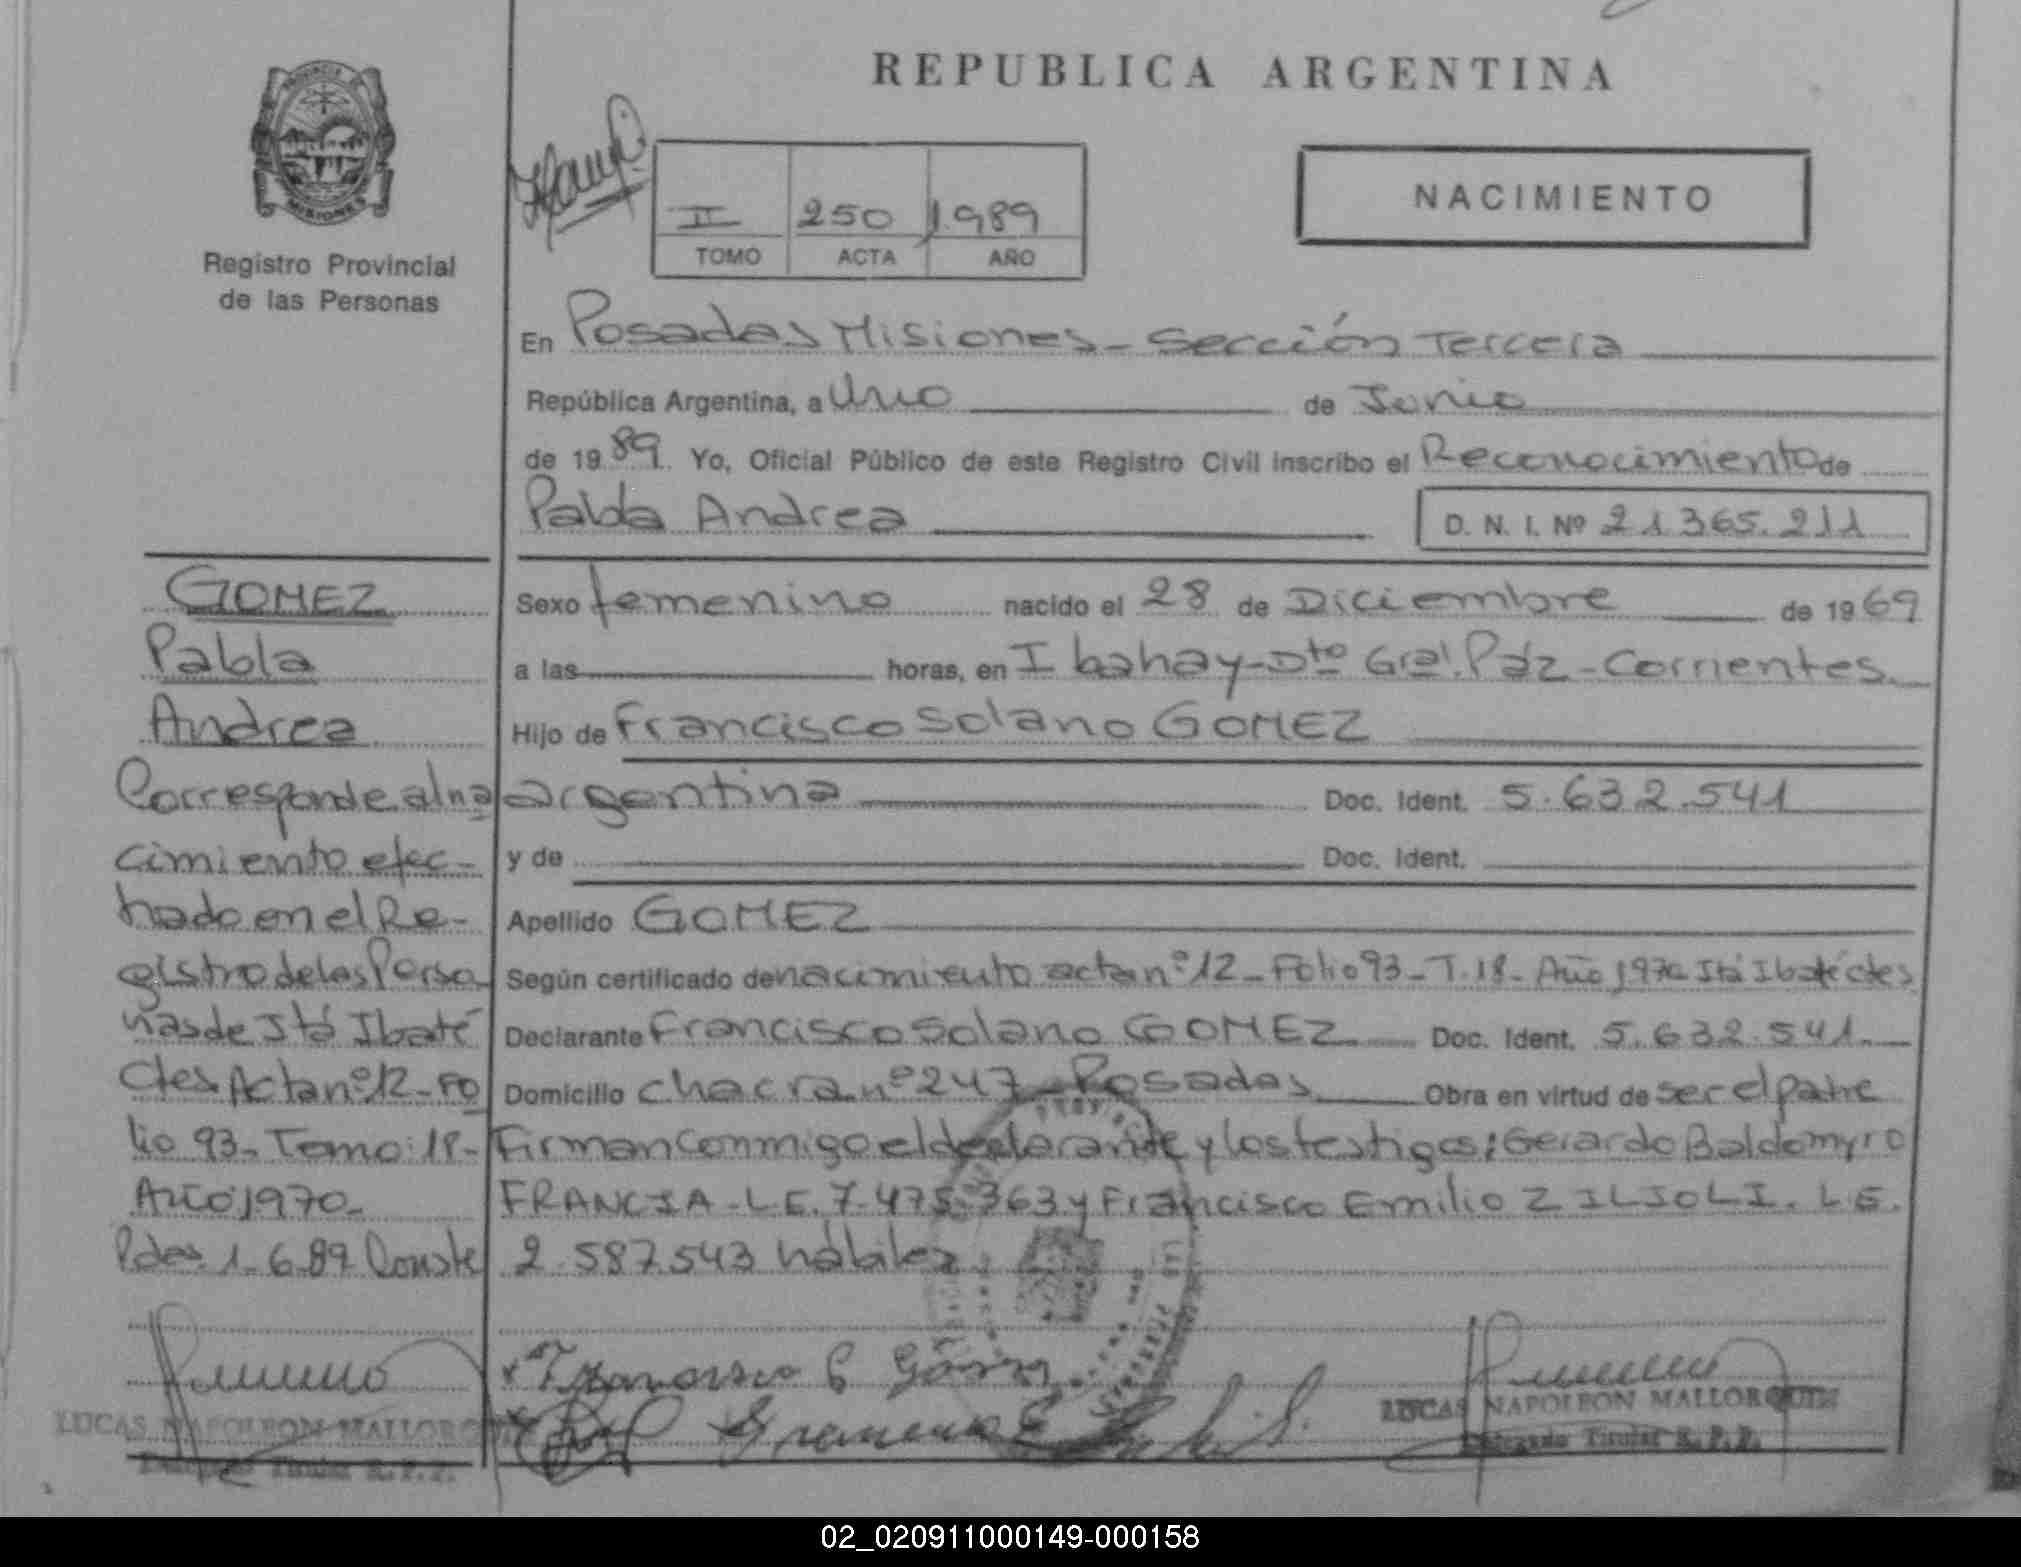 REPUBLICA ARGENTINA
PROVINCIA DE
MISIONES
Registro Provincial
de las Personas
II 250 1.989
TOMO ACTA AÑO
NACIMIENTO
En Posadas Misiones - Sección Tercera
República Argentina, a Uno de Junio
de 1989. Yo, Oficial Público de este Registro Civil inscribo el Reconocimiento de
Pabla Andrea D. N. I. Nº 21.365.211
Sexo femenino nacido el 28 de Diciembre de 1969
a las horas, en Ibahay - Dto Gral. Páz - Corrientes
Hijo de Francisco Solano GOMEZ
argentina Doc. Ident. 5.632.541
y de Doc. Ident.
Apellido GOMEZ
Según certificado de nacimiento acta nº 12 - Folio 93 - T. 18 - Año 1970 Itá Ibaté ctes
Declarante Francisco Solano GOMEZ Doc. Ident. 5.632.541.
Domicilio chacra nº 247 Posadas Obra en virtud de ser el padre
Firman conmigo el declarante y los testigos: Gerardo Baldomyro
FRANCIA - L.E. 7.475.363 y Francisco Emilio ZILIOLI. L.E.
2.587.543 hábiles
GOMEZ
Pabla
Andrea
Corresponde al na
cimiento efec-
tuado en el Re-
gistro de las Perso
nas de Itá Ibaté
Ctes Acta nº 12 - Fo
lio 93 - Tomo: 18 -
Año 1970 -
Pdas. 1.6.89 Conste
LUCAS NAPOLEON MALLORQUIN
Delegado Titular R. P. P.
LUCAS NAPOLEON MALLORQUIN
Delegado Titular R. P. P.
02_020911000149-000158